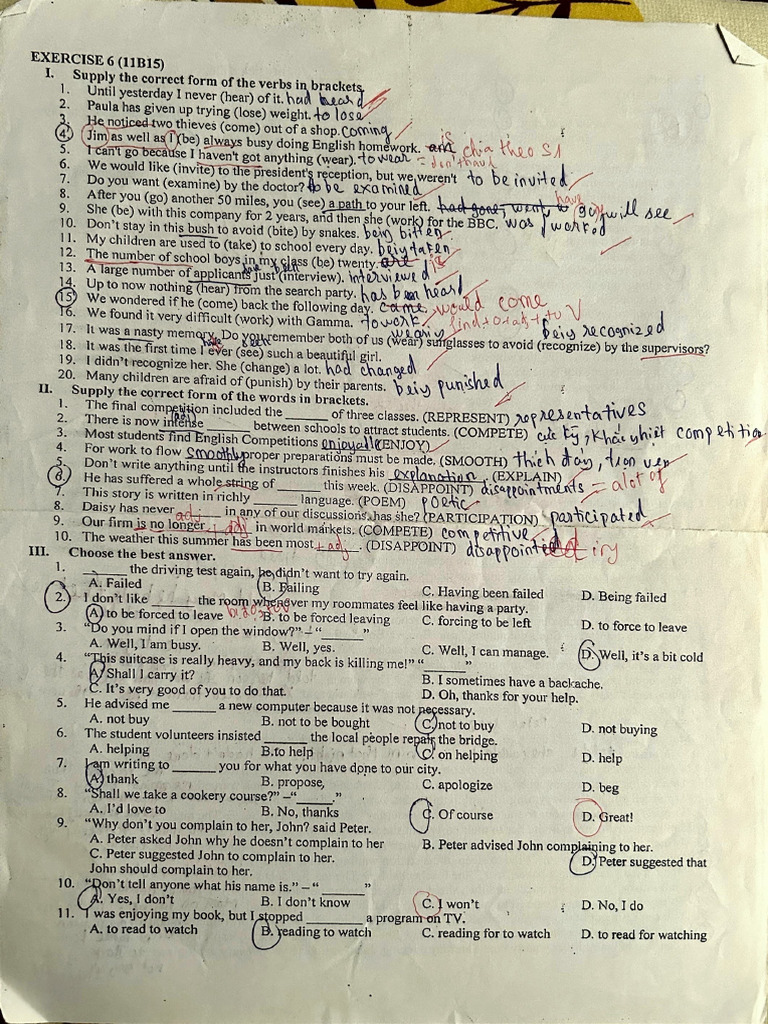 EXERCISE 6 (11B15)
I. Supply the correct form of the verbs in brackets.
1. Until yesterday I never (hear) of it. had heard
2. Paula has given up trying (lose) weight. to lose
3. He noticed two thieves (come) out of a shop. coming
4. Jim as well as I (be) always busy doing English homework. am is chia theo S1
5. I can't go because I haven't got anything (wear). to wear = don't have
6. We would like (invite) to the president's reception, but we weren't to be invited
7. Do you want (examine) by the doctor? to be examined
8. After you (go) another 50 miles, you (see) a path to your left. had gone, went have gone, will see
9. She (be) with this company for 2 years, and then she (work) for the BBC. was / worked
10. Don't stay in this bush to avoid (bite) by snakes. being bitten
11. My children are used to (take) to school every day. being taken
12. The number of school boys in my class (be) twenty. are is
13. A large number of applicants just (interview). have been interviewed
14. Up to now nothing (hear) from the search party. has been heard
15. We wondered if he (come) back the following day. came would come
16. We found it very difficult (work) with Gamma. to work find + O + adj + to V
17. It was a nasty memory. Do you remember both of us (wear) sunglasses to avoid (recognize) by the supervisors? wearing being recognized
18. It was the first time I ever (see) such a beautiful girl.
19. I didn't recognize her. She (change) a lot. had changed
20. Many children are afraid of (punish) by their parents. being punished
II. Supply the correct form of the words in brackets.
1. The final competition included the ______ of three classes. (REPRESENT) representatives
2. There is now intense ______ between schools to attract students. (COMPETE) (adj) cực kỳ, khắc nghiệt competition
3. Most students find English Competitions enjoyable (ENJOY)
4. For work to flow smoothly proper preparations must be made. (SMOOTH)
5. Don't write anything until the instructors finishes his explanation. (EXPLAIN)
6. He has suffered a whole string of ______ this week. (DISAPPOINT) disappointments = a lot of
7. This story is written in richly ______ language. (POEM) poetic
8. Daisy has never adj in any of our discussions, has she? (PARTICIPATION) participated
9. Our firm is no longer + adj in world markets. (COMPETE) competitive
10. The weather this summer has been most + adj. (DISAPPOINT) disappointed ing
III. Choose the best answer.
1. ______ the driving test again, he didn't want to try again.
A. Failed B. Failing C. Having been failed D. Being failed
2. I don't like ______ the room whenever my roommates feel like having a party.
A. to be forced to leave B. to be forced leaving C. forcing to be left D. to force to leave
3. "Do you mind if I open the window?" – "______"
A. Well, I am busy. B. Well, yes. C. Well, I can manage. D. Well, it's a bit cold
4. "This suitcase is really heavy, and my back is killing me!" "______"
A. Shall I carry it? B. I sometimes have a backache.
C. It's very good of you to do that. D. Oh, thanks for your help.
5. He advised me ______ a new computer because it was not necessary.
A. not buy B. not to be bought C. not to buy D. not buying
6. The student volunteers insisted ______ the local people repair the bridge.
A. helping B.to help C. on helping D. help
7. I am writing to ______ you for what you have done to our city.
A. thank B. propose, C. apologize D. beg
8. "Shall we take a cookery course?" –"______."
A. I'd love to B. No, thanks C. Of course D. Great!
9. "Why don't you complain to her, John? said Peter.
A. Peter asked John why he doesn't complain to her B. Peter advised John complaining to her.
C. Peter suggested John to complain to her. D. Peter suggested that
John should complain to her.
10. "Don't tell anyone what his name is." – "______"
A. Yes, I don't B. I don't know C. I won't D. No, I do
11. I was enjoying my book, but I stopped ______ a program on TV.
A. to read to watch B. reading to watch C. reading for to watch D. to read for watching